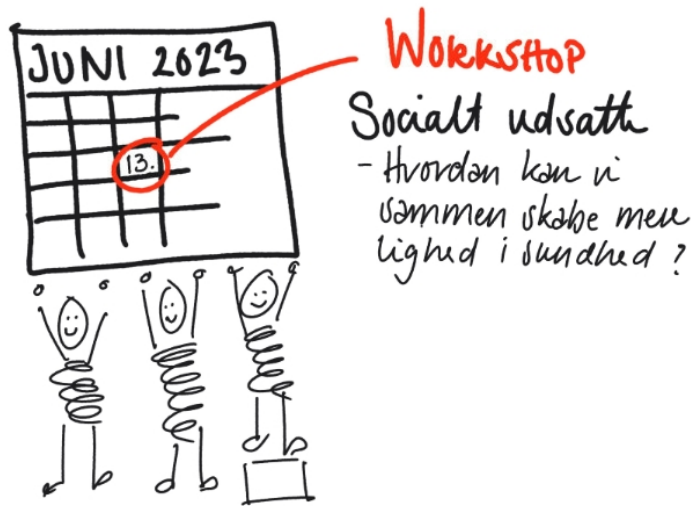 JUNI 2023
13.
WORKSHOP
Socialt udsatte
- Hvordan kan vi
sammen skabe mere
lighed i sundhed ?